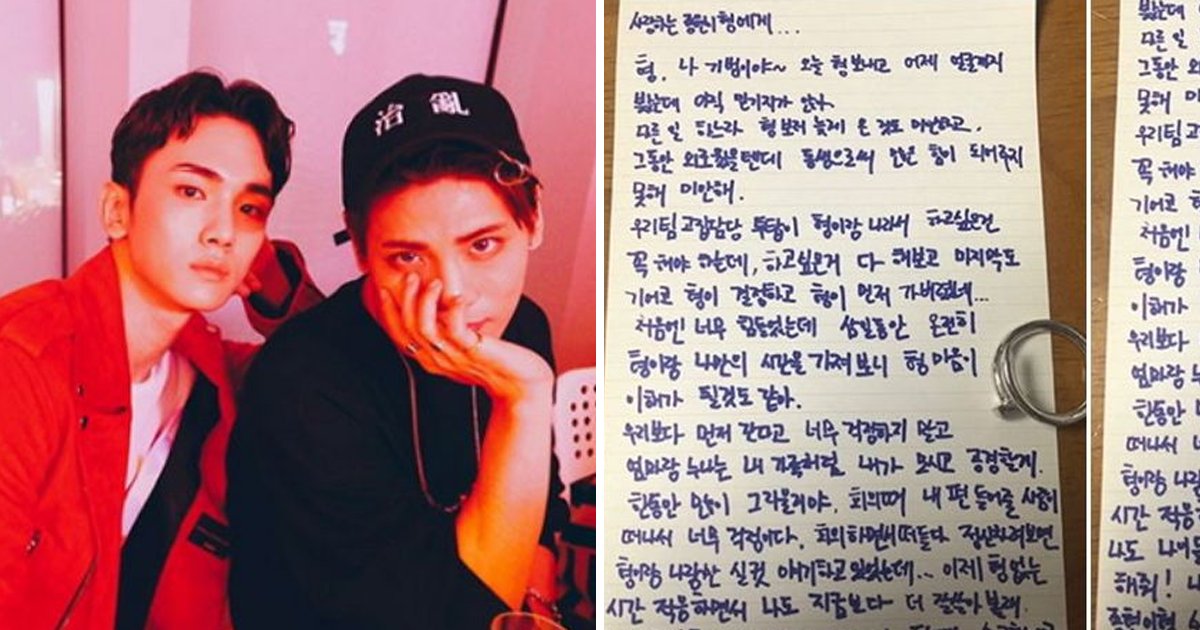 治 亂
사랑하는 종현이형에게...
형. 나 기범이야~ 오늘 형 보내고 어제 얼굴까지
봤는데 아직 믿기지가 않아.
다른 일 하느라 형 보러 늦게 온 것도 미안하고.
그동안 외로웠을텐데 동생으로써 많은 힘이 되어주지
못해 미안해.
우리팀 고집담당 투탑이 형이랑 나라서 하고싶은건
꼭 해야 하는데, 하고싶은거 다 해보고 마지막도
기어코 형이 결정하고 형이 먼저 가버렸네...
처음엔 너무 힘들었는데 삼일동안 온전히
형이랑 나만의 시간을 가져보니 형 마음이
이해가 될것도 같아.
우리보다 먼저 간다고 너무 걱정하지 말고
엄마랑 누나는 내 가족처럼 내가 모시고 공경할게.
한동안 많이 그리울거야. 회의때 내 편 들어줄 사람이
떠나서 너무 걱정이다. 회의하면서 떠들다 정신차려보면
형이랑 나랑만 실컷 얘기하고있었는데... 이제 형 없는
시간 적응하면서 나도 지금보다 더 잘 살아볼래.
봤는데
다른 일
그동안 외
못해 미
우리팀
꼭 해야
기어코
처음엔
형이랑
이해가
우리보다
엄마랑 누
한동안
떠나서
형이랑 나
시간 적응
나도
해줘!